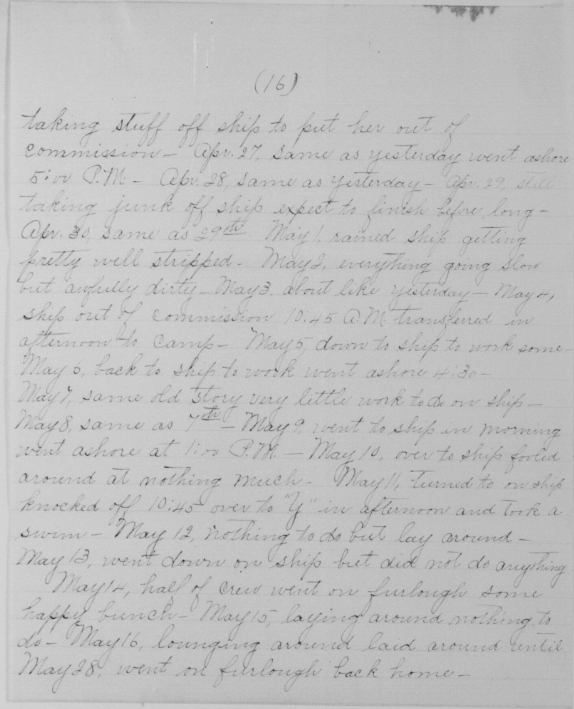 (16)
taking stuff off ship to put her out of
commission - Apr. 27, same as yesterday went ashore
5:00 P.M. - Apr. 28, same as yesterday - Apr. 29, still
taking junk off ship expect to finish before long -
Apr. 30, same as 29th - May 1, rained ship getting
pretty well stripped - May 2, everything going slow
but awfully dirty - May 3, about like yesterday - May 4,
ship out of commission 10:45 A.M. transferred in
afternoon to camp - May 5 down to ship to work some -
May 6, back to ship to work went ashore 4:30 -
May 7, same old story very little work to do on ship -
May 8, same as 7th - May 9, went to ship in morning
went ashore at 1:00 P.M. - May 10, over to ship fooled
around at nothing much - May 11, turned to on ship
knocked off 10:45 over to "Y" in afternoon and took a
swim - May 12, nothing to do but lay around -
May 13, went down on ship but did not do anything
May 14, half of crew went on furlough some
happy bunch - May 15, laying around nothing to
do - May 16, lounging around laid around until
May 28, went on furlough back home -